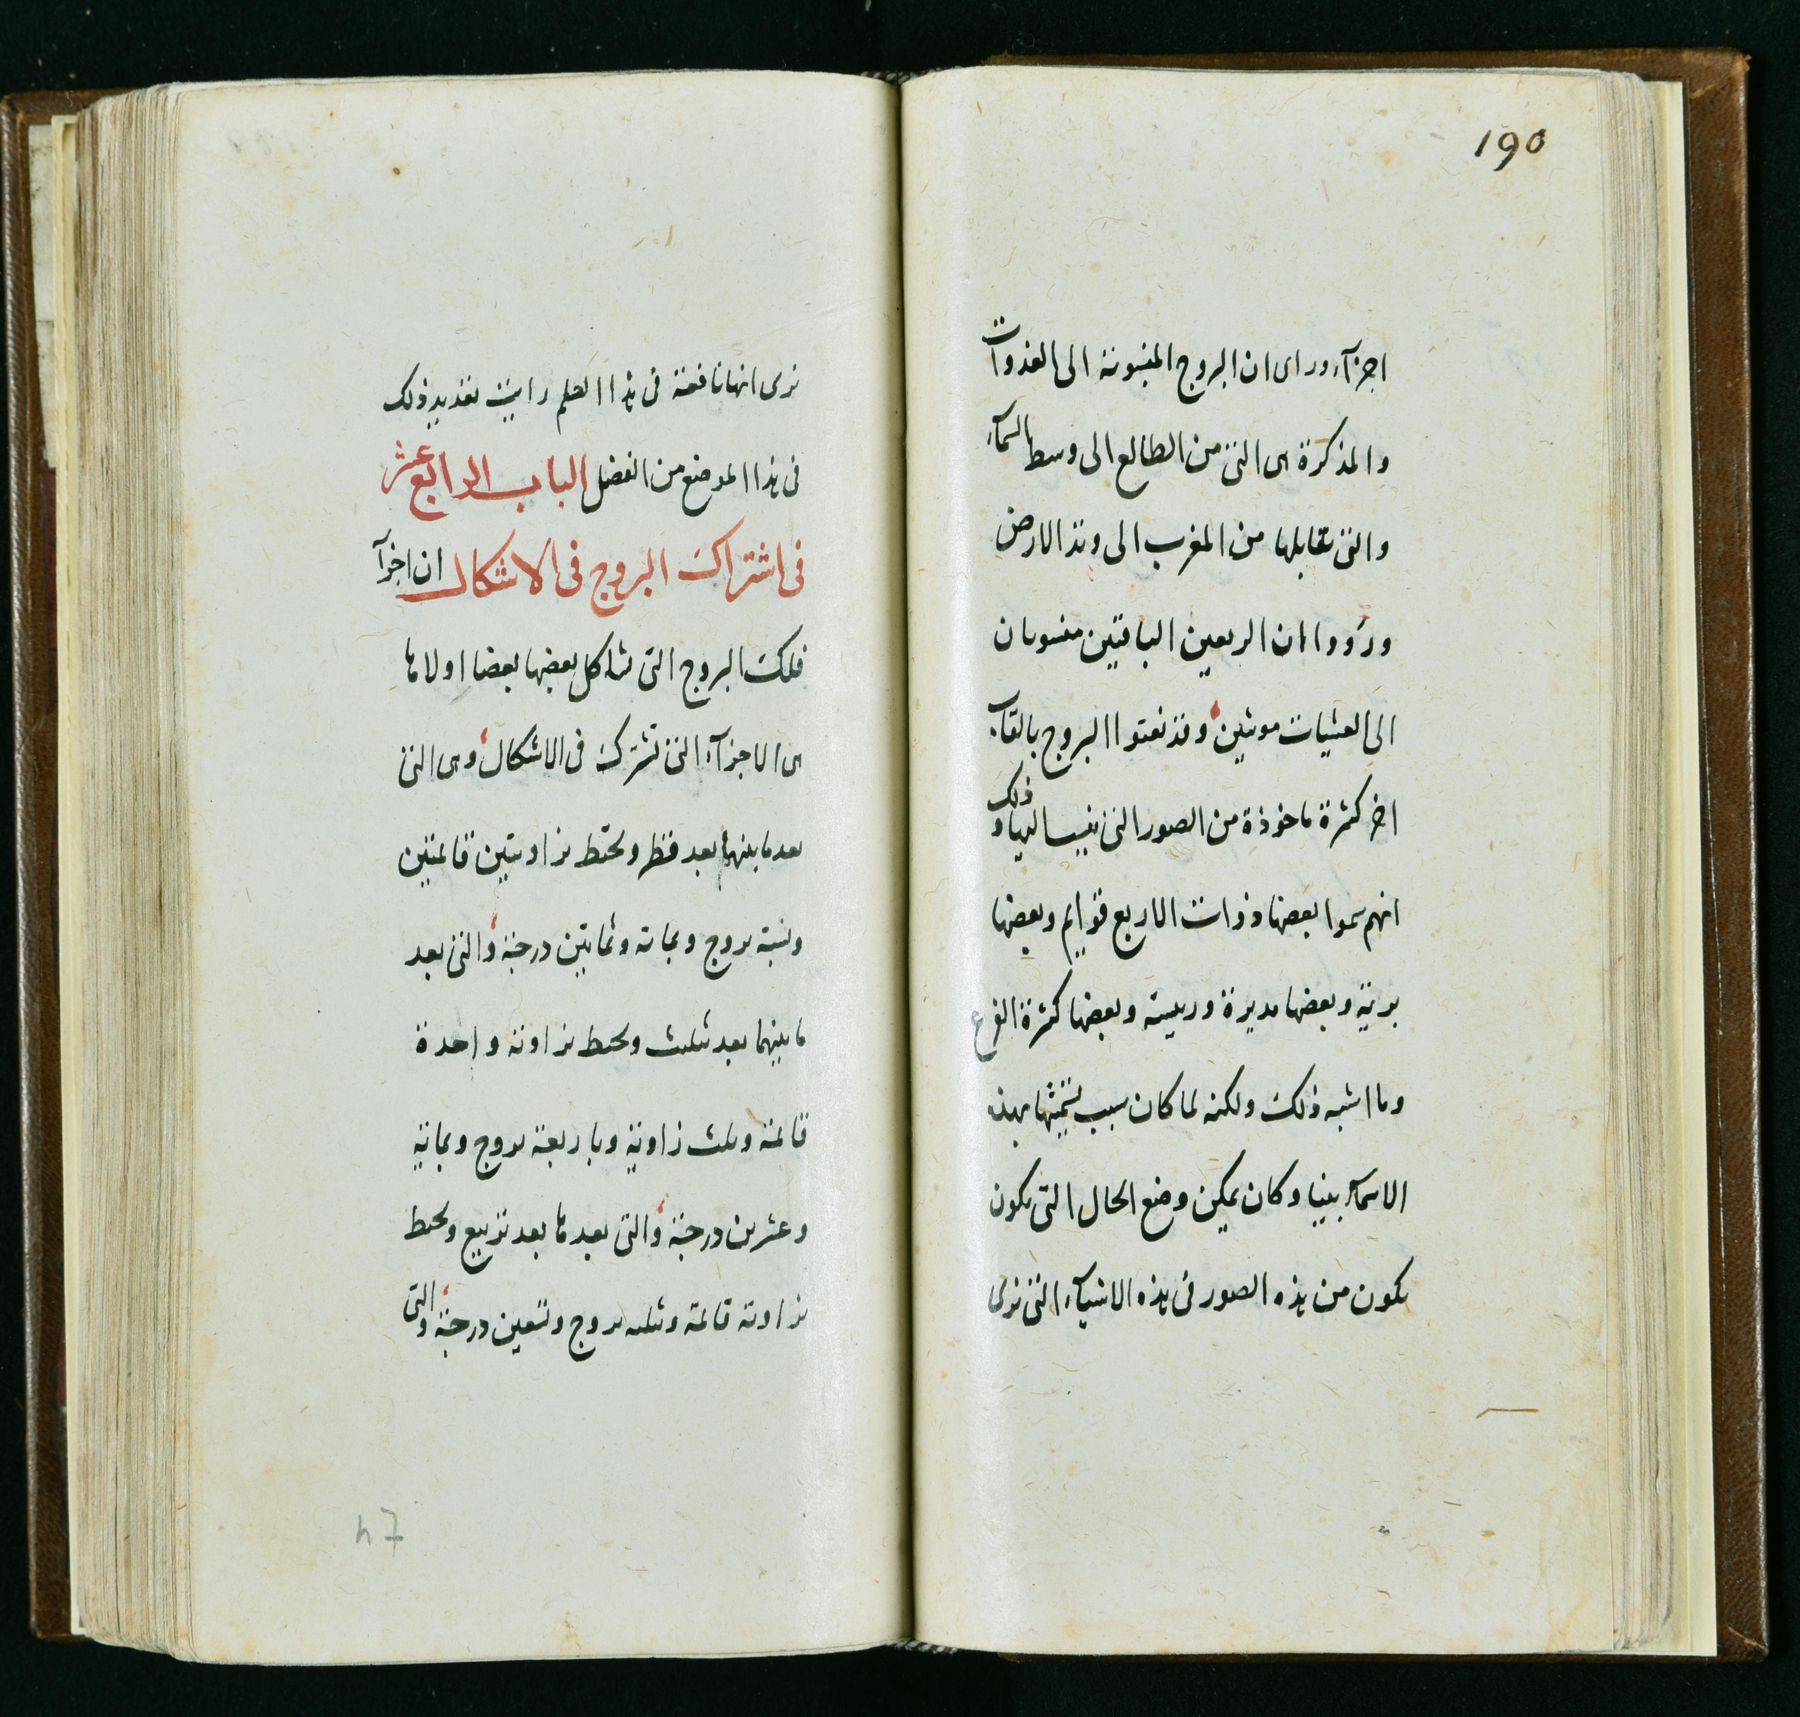 190
اجزآء وراى ان البروج المنسوبة الى الغدوات
والمذكرة هى التى من الطالع الى وسط السمآء
والتى تقابلها من المغرب الى وتد الارض
ورووا ان الربعين الباقيين منسوبان
الى العشيات مونثين وقد نعتوا البروج بالقاب
اخر كثيرة ماخوذة من الصور التى ينسبها اليها وذلك
انهم سموا بعضها ذوات الاربع قوايم وبعضها
برية وبعضها مدبرة ورييسة وبعضها كثيرة الفرع
وما اشبه ذلك ولكنه لما كان سبب تسميتها بهذه
الاسمآء بينا وكان يمكن وضع الحال التى تكون
تكون من هذه الصور فى هذه الاشيآء التى نرى
نرى انها نافعة فى هذا العلم رايت تقديم ذلك
فى هذا الموضع من الفصل الباب الرابع عشر
فى اشتراك البروج فى الاشكال ان اجزآ
فلك البروج التى تشاكل بعضها بعضا اولاها
هى الاجزآء التى تشترك فى الاشكال وهى التى
بعد ما بينهما بعد قطر ويحيط بزاويتين قائمتين
وبستة بروج وبمائة وثمانين درجة والتى بعد
ما بينهما بعد تثليث ويحيط بزاوية واحدة
قائمة وثلث زاوية وباربعة بروج وبماية
وعشرين درجة والتى بعد ما بعد تربيع ويحيط
بزاوية قائمة وثلثه بروج وتسعين درجة والتى
47